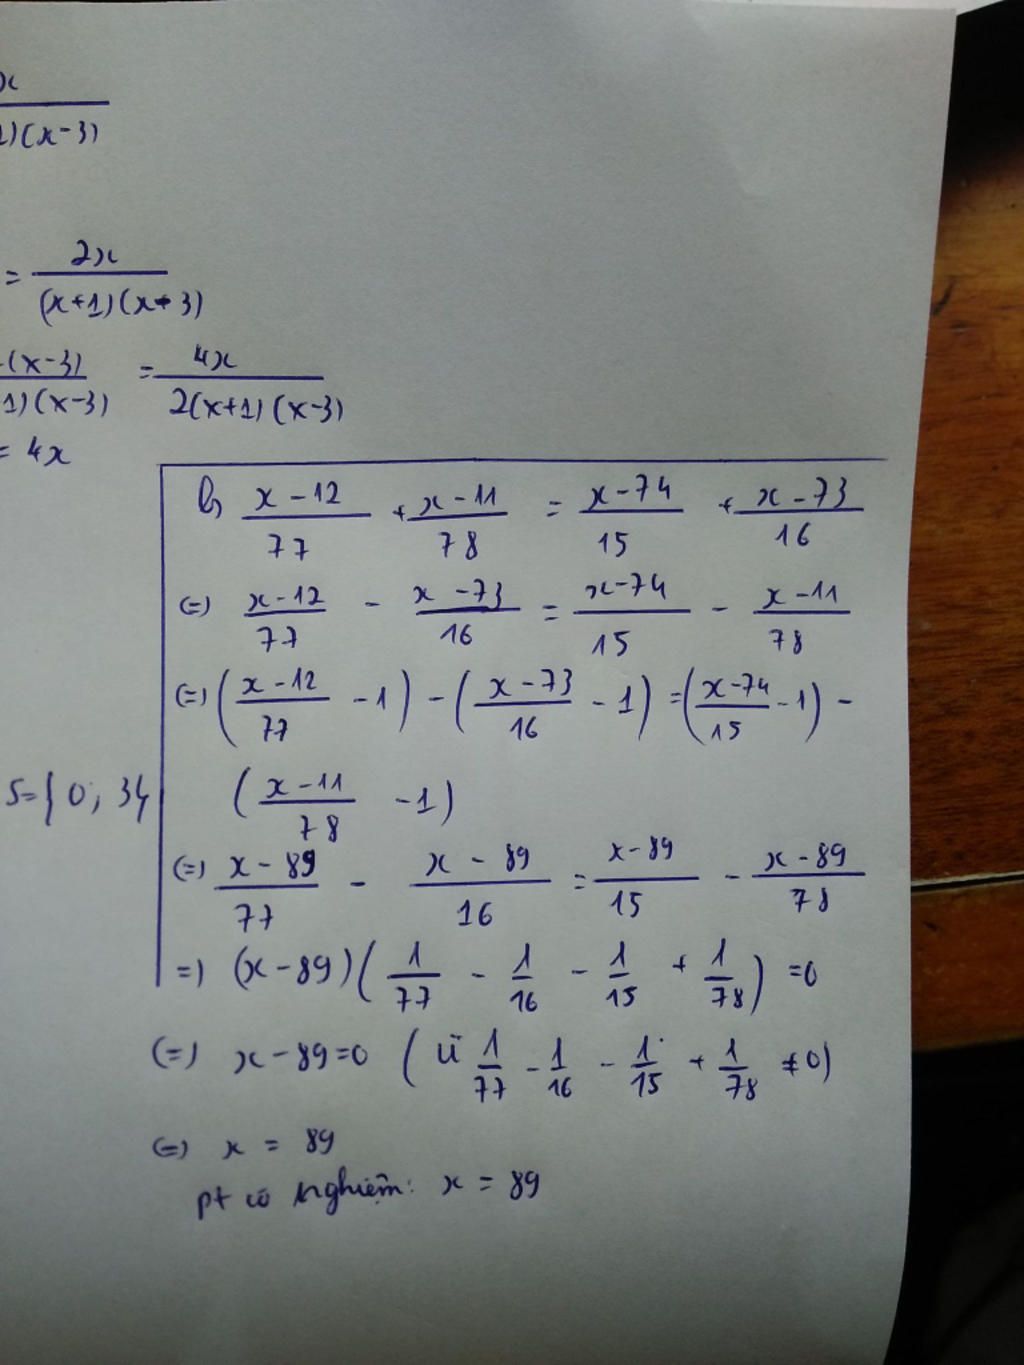 x
1)(x-3)
= 2x / (x+1)(x-3)
-(x-3) / 1)(x-3) = 4x / 2(x+1)(x-3)
= 4x
b, (x-12)/77 + (x-11)/78 = (x-74)/15 + (x-73)/16
(=) (x-12)/77 - (x-73)/16 = (x-74)/15 - (x-11)/78
(=) ((x-12)/77 - 1) - ((x-73)/16 - 1) = ((x-74)/15 - 1) -
((x-11)/78 - 1)
S={0; 3}
(=) (x-89)/77 - (x-89)/16 = (x-89)/15 - (x-89)/78
=) (x-89)(1/77 - 1/16 - 1/15 + 1/78) = 0
(=) x-89=0 (vì 1/77 - 1/16 - 1/15 + 1/78 ≠ 0)
(=) x = 89
pt có nghiệm: x = 89